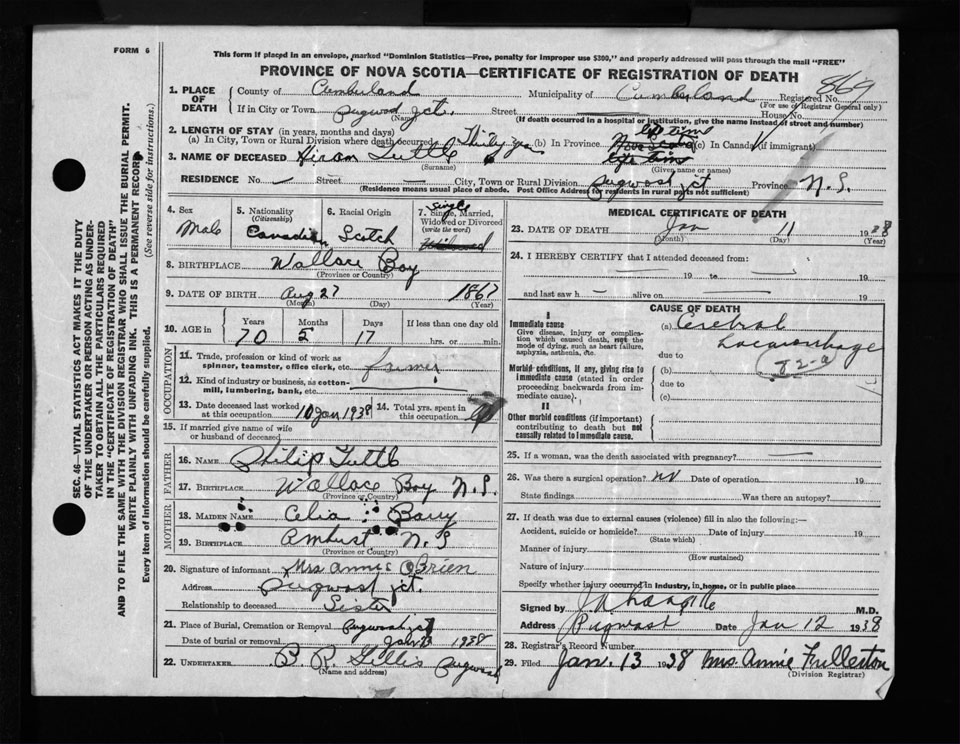 FORM 6
This form if placed in an envelope, marked "Dominion Statistics—Free, penalty for improper use $300," and properly addressed will pass through the mail "FREE"
PROVINCE OF NOVA SCOTIA—CERTIFICATE OF REGISTRATION OF DEATH
869
1. PLACE OF DEATH County of Cumberland Municipality of Cumberland Registered No.
(For use of Registrar General only)
If in City or Town Pugwash Jct. Street House No.
(Name) (If death occurred in a hospital or institution, give the name instead of street and number)
2. LENGTH OF STAY (in years, months and days) life time
(a) In City, Town or Rural Division where death occurred Thirty yrs (b) In Province Nova Scotia (c) In Canada (if immigrant)
life time
3. NAME OF DECEASED Hiram Tuttle
(Surname) (Given name or names)
RESIDENCE No. — Street City, Town or Rural Division Pugwash Jct Province N.S.
(Residence means usual place of abode. Post Office Address for residents in rural parts not sufficient)
4. Sex Male
5. Nationality (Citizenship) Canadian
6. Racial Origin Scotch
7. Single, Married, Widowed or Divorced (write the word) Single
8. BIRTHPLACE Wallace Bay
(Province or Country)
9. DATE OF BIRTH Aug 27 1867
(Month) (Day) (Year)
10. AGE in Years Months Days If less than one day old
70 5 17 hrs. or min.
OCCUPATION
11. Trade, profession or kind of work as spinner, teamster, office clerk, etc. farmer
12. Kind of industry or business, as cotton-mill, lumbering, bank, etc.
13. Date deceased last worked at this occupation 10 Jan 1938
14. Total yrs. spent in this occupation
15. If married give name of wife or husband of deceased
FATHER
16. NAME Philip Tuttle
17. BIRTHPLACE Wallace Bay N.S.
(Province or Country)
MOTHER
18. MAIDEN NAME Celia Barry
19. BIRTHPLACE Amhurst N.S
(Province or Country)
20. Signature of informant Mrs Annie O'Brien
Address Pugwash Jct.
Relationship to deceased Sister
21. Place of Burial, Cremation or Removal Pugwash Jct
Date of burial or removal 1938
22. UNDERTAKER B. R. Gillis Pugwash
(Name and address)
MEDICAL CERTIFICATE OF DEATH
23. DATE OF DEATH Jan 11 1938
(Month) (Day) (Year)
24. I HEREBY CERTIFY that I attended deceased from:
19 to 19
and last saw h — alive on 19
CAUSE OF DEATH
I
Immediate cause
Give disease, injury or complication which caused death, not the mode of dying, such as heart failure, asphyxia, asthenia, etc.
(a) Cerebral
due to
82-a
Morbid conditions, if any, giving rise to immediate cause (stated in order proceeding backwards from immediate cause).
(b)
due to
(c)
II
Other morbid conditions (if important) contributing to death but not causally related to immediate cause.
25. If a woman, was the death associated with pregnancy?
26. Was there a surgical operation? no Date of operation 19
State findings Was there an autopsy?
27. If death was due to external causes (violence) fill in also the following:—
Accident, suicide or homicide? Date of injury 19
(State which)
Manner of injury
(How sustained)
Nature of injury
Specify whether injury occurred in industry, in home, or in public place
Signed by M.D.
Address Pugwash Date Jan 12 1938
28. Registrar's Record Number
29. Filed Jan. 13 1938 Mrs. Annie Fullerton
(Division Registrar)
SEC. 46—VITAL STATISTICS ACT MAKES IT THE DUTY
OF THE UNDERTAKER OR PERSON ACTING AS UNDER-
TAKER TO OBTAIN ALL THE PARTICULARS REQUIRED
IN THE "CERTIFICATE OF REGISTRATION OF DEATH"
AND TO FILE THE SAME WITH THE DIVISION REGISTRAR WHO SHALL ISSUE THE BURIAL PERMIT.
WRITE PLAINLY WITH UNFADING INK. THIS IS A PERMANENT RECORD
Every item of information should be carefully supplied. (See reverse side for instructions.)